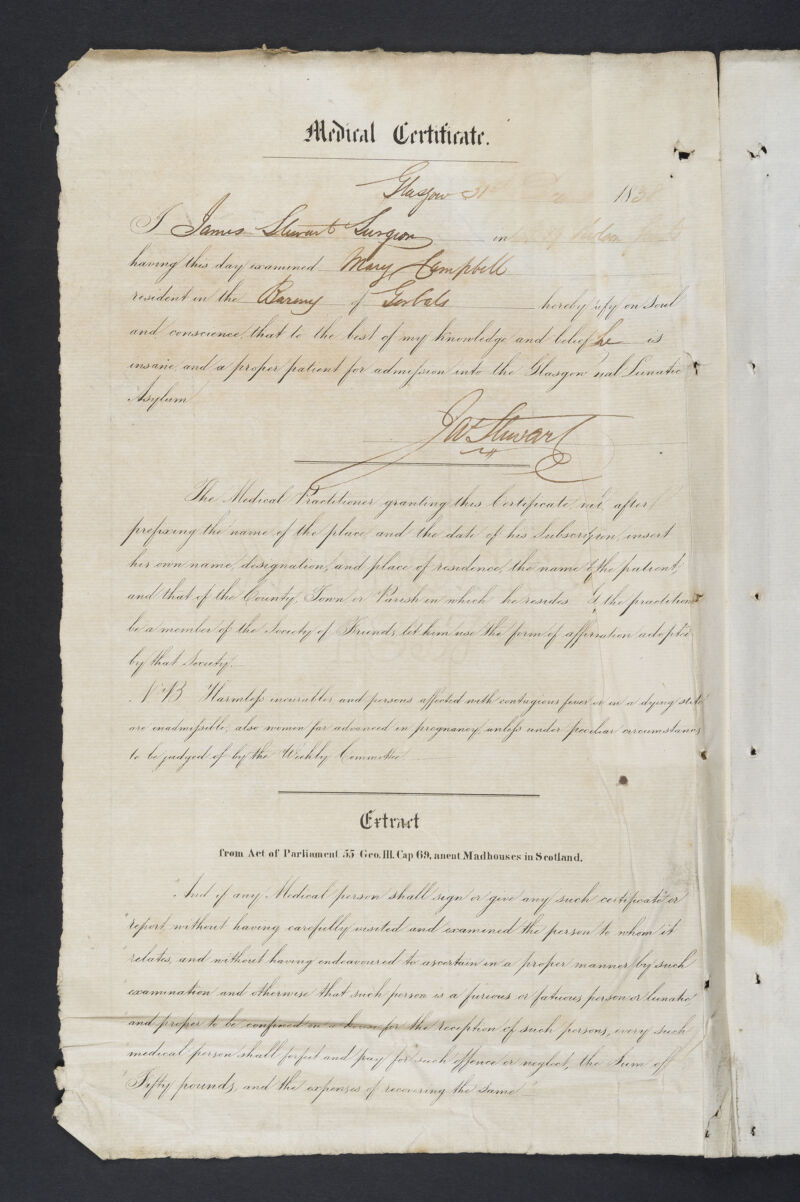 Medical Certificate.
Glasgow 31st 1838
I James Stewart Surgeon in
having this day examined Mary Campbell
resident in the Barony of Gorbals hereby ify on Soul
and conscience, that to the best of my knowledge and belief he is
insane, and a proper patient for admission into the Glasgow nal Lunatic
Asylum
Jas Stewart
The Medical Practitioner granting this Certificate, after
prefixing the name of the place and the date of his Subscription, insert
his own name, designation, and place of residence, the name of the patient,
and that of the County, Town or Parish in which he resides. If the practitione
be a member of the Society of Friends, let him use the form of affirmation adopted
by that Society.
N.B. Harmless incurables and persons affected with contagious fever or in a dying state
are inadmissible; also women far advanced in pregnancy, unless under peculiar circumstances
to be judged of by the Weekly Committee
Extract
from Act of Parliament 55 Geo. III. Cap 69, anent Madhouses in Scotland.
"And if any Medical person shall sign or give any such certificate or
"report, without having carefully visited and examined the person to whom it
"relates, and without having endeavoured to ascertain in a proper manner by such
"examination and otherwise that such person is a furious or fatuous person or lunatic
"and proper to be confined in a house for the reception of such persons, every such
"medical person shall forfeit and pay for such offence or neglect, the Sum of
"Fifty pounds, and the expenses of recovering the same"